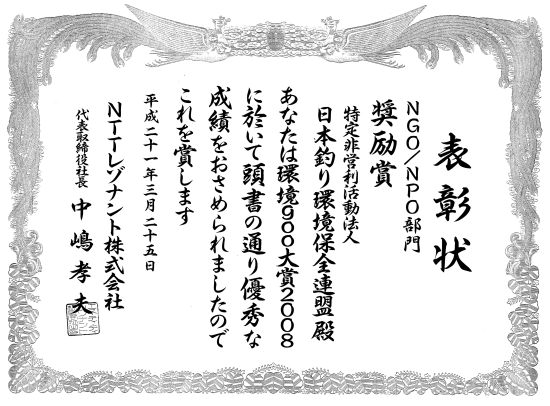 表彰状
NGO/NPO部門
奨励賞
特定非営利活動法人
日本釣り環境保全連盟殿
あなたは環境goo大賞2008
に於いて頭書の通り優秀な
成績をおさめられましたので
これを賞します
平成二十一年三月二十五日
NTTレゾナント株式会社
代表取締役社長
中嶋孝夫